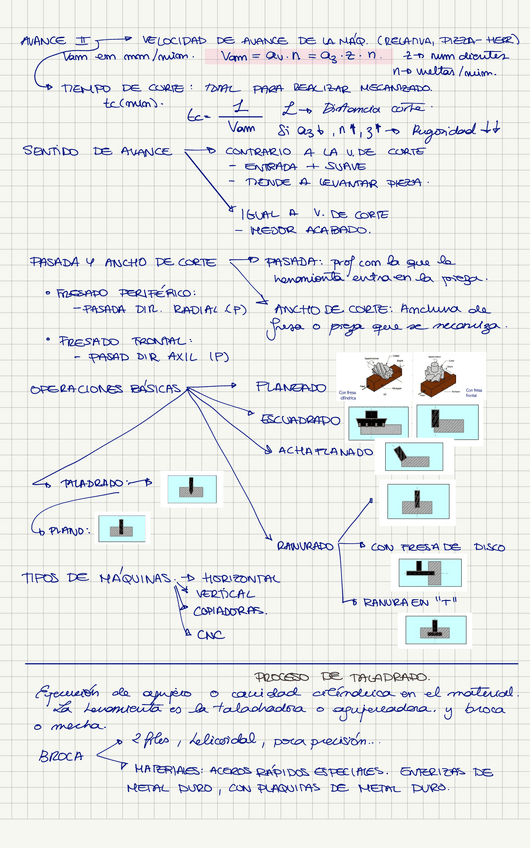 AVANCE II → VELOCIDAD DE AVANCE DE LA MÁQ. (RELATIVA, PIEZA-HER)
Vam em mm/mim. Vam = av · n = az · z · n. z → num dientes
n → vueltas/mim.
→ TIEMPO DE CORTE: TOTAL PARA REALIZAR MECANIZADO.
tc (min).
tc = 1 / Vam L → Distancia corte.
Si az↓, n↑, z↑ → Rugosidad ↓↓
SENTIDO DE AVANCE → CONTRARIO A LA V. DE CORTE
- ENTRADA + SUAVE
- TIENDE A LEVANTAR PIEZA.
IGUAL A V. DE CORTE
- MEJOR ACABADO.
PASADA Y ANCHO DE CORTE → PASADA: prof con la que la
herramienta entra en la pieza.
• FRESADO PERIFÉRICO:
- PASADA DIR. RADIAL (P)
ANCHO DE CORTE: Anchura de
fresa o pieza que se mecaniza.
• FRESADO FRONTAL:
- PASAD DIR AXIL (P)
OPERACIONES BÁSICAS → PLANEADO
Con fresa
cilíndrica
Con fresa
frontal
ESCUADRADO
ACHAFLANADO
→ TALADRADO: →
→ PLANO:
RANURADO → CON FRESA DE DISCO
TIPOS DE MÁQUINAS: → HORIZONTAL
VERTICAL
COPIADORAS.
CNC
→ RANURA EN "T"
PROCESO DE TALADRADO.
Ejecución de agujero o cavidad cilíndrica en el material.
La herramienta es la taladradora o agujereadora. y broca
o mecha.
BROCA → 2 filos, helicoidal, poca precisión...
MATERIALES: ACEROS RÁPIDOS ESPECIALES. ENTERIZAS DE
METAL DURO, CON PLAQUITAS DE METAL DURO.